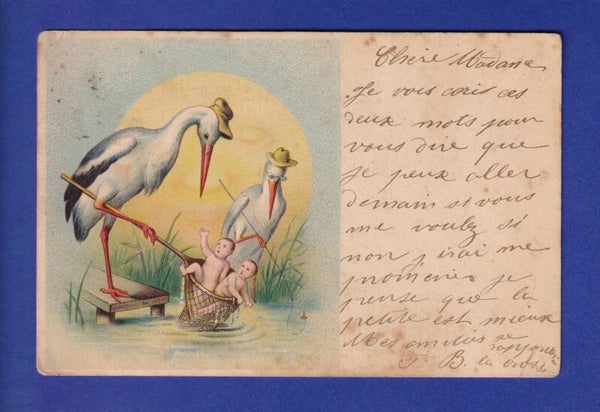 Chère Madame
Je vous écris ces
deux mots pour
vous dire que
je peux aller
demain si vous
me voulez si
non j irai me
promener je
pense que la
petite est mieux
Mes amitiés
J B. la